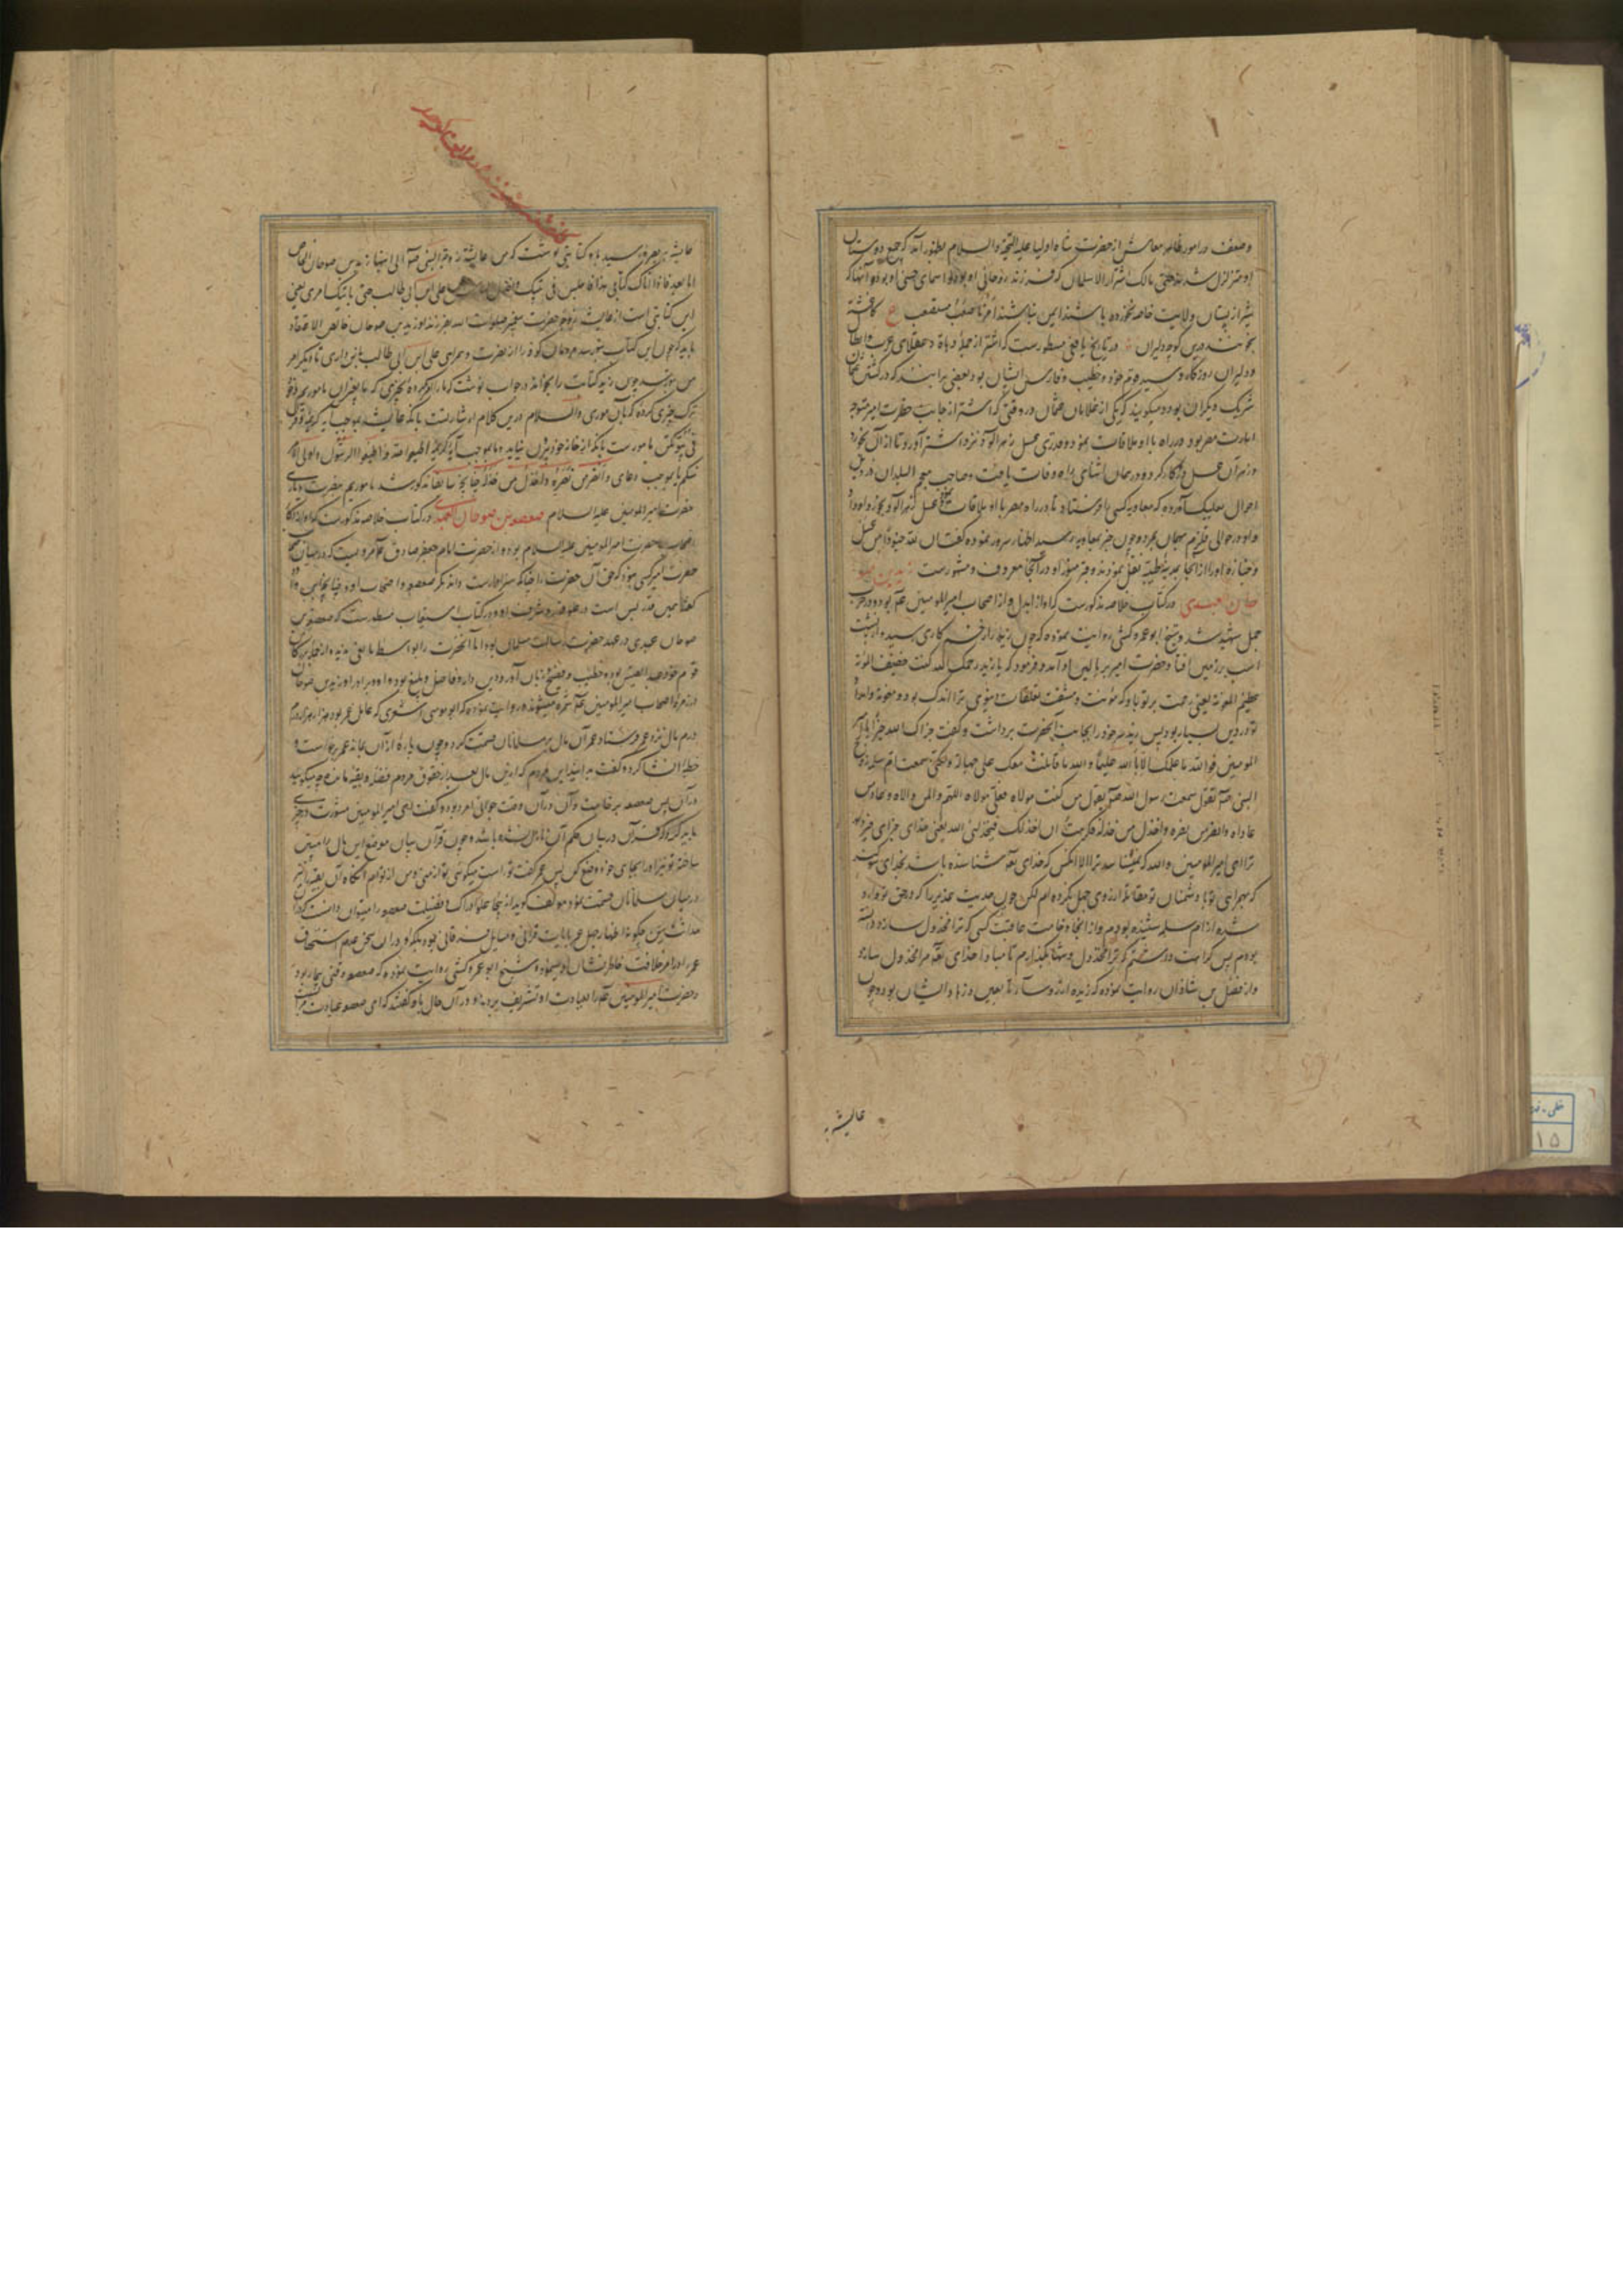 وضعف در امور ظاهر معاش از حضرت شاه اولیا علیه التحیة والسلام بظهور آمد که جمیع دوستان
او متزلزل شدند حتی مالک اشتر الا سلمان که فرزند روحانی او بود و
شیر از پستان ولایت خاصه نخورده باشند ایمن نباشند
درین کوچه دلیران در تاریخ یافعی مسطورست که اشتر از جمله دهاة و عقلای عرب و ابطال
و دلیران روزگار و سید قوم خود و خطیب و فارس ایشان بود و بعضی برانند که در کشتن عثمان
شریک دیگران بود و میگویند که یکی از غلامان عثمان در وقتی که اشتر از جانب حضرت امیر متوجه
امارت مصر بود در راه با او ملاقات نمود و قدری عسل زهرآلود نزد اشتر آورد تا از آن بخورد
و زهر آن عسل درو کار کرد و در همان اثنای راه وفات یافت و صاحب معجم البلدان در ذیل
احوال بعلبک آورده که معاویه کسی را فرستاد تا در راه مصر با او ملاقات عسل زهرآلود بخورد او داد
و او در حوالی قلزم بمرد و چون خبر بمعاویه رسید اظهار سرور نموده گفت ان لله جنودا من عسل
و جنازه او را از آنجا بمدینه طیبه نقل نمودند و قبر منور او در آنجا معروف و مشهورست زید بن صو
حان عبدی در کتاب خلاصه مذکورست که او از ابدال و از اصحاب امیر المومنین عم بود و در حرب
جمل شهید شد و شیخ ابو عمرو کشی روایت نموده که چون زید را زخم کاری رسید و از پشت
اسب بر زمین افتاد حضرت امیر بر بالین او آمد و فرمود که یا زید رحمک الله کنت خفیف المؤنة
عظیم المعونة یعنی رحمت بر تو باد که مؤنت و مشقت تعلقات دنیوی ترا اندک بود و معونت و امداد
تو در دین بسیار بود پس زید سر خود را بجانب آنحضرت برداشت و گفت جزاک الله خیرا یا امیر
المومنین فوالله ما علمتک الا بالله علیما و الله ما قاتلت معک علی جهالة ولکنی سمعت ام سلمه زوج
النبی صلم تقول سمعت رسول الله صلم یقول من کنت مولاه فعلی مولاه اللهم وال من والاه و عاد من
عاداه وانصر من نصره واخذل من خذله فکرهت ان اخذلک فیخذلنی الله یعنی خدای جزای خیر دهد
ترا ای امیر المومنین والله که نمیشناسد ترا الا آنکس که خدای تعالی شناسنده باشد بخدای سوگند
که بهمراهی تو با دشمنان تو مقاتله از روی جهل نکرده ام لکن چون حدیث غدیر را که در حق تو وارد
شده از ام سلمه شنیده بودم و از انجا وخامت عاقبت کسی که ترا مخذول سازد دانسته
بودم پس کراهت داشتم که ترا مخذول و تنها بگذارم تا مبادا خدای تعالی مرا مخذول سازد
و از فضل بن شاذان روایت نموده که زید از رؤسای تابعین و زهاد ایشان بود و چون
عایشه به
عایشه ببصره رسید باو کتابتی نوشت که من عایشة زوجة النبی صلم الی ابنها زید بن صوحان الخاص
اما بعد فاذا اتاک کتابی هذا فاجلس فی بیتک علی بن ابی طالب حتی یاتیک امری یعنی
این کتابتی است از عایشه زوجه حضرت پیغمبر صلوات الله بفرزند او زید بن صوحان خالص الاعتقاد
باید که چون این کتاب بتو رسد مردمان کوفه را از نصرت و همراهی علی بن ابی طالب باز داری تا دیگر امر
من بتو رسد چون زید کتابت را بخواند در جواب نوشت که ما را امر کرده بچیزی که ما بغیر آن ماموریم و خود
ترک چیزی کرده که بآن ماموری والسلام درین کلام اشارتست بآنکه عایشه بموجب آیه کریمه وقرن
فی بیوتکن مامورست بآنکه از خانه خود بیرون نیاید و ما بموجب آیه کریمه اطیعوا الله و اطیعوا الرسول و اولی الامر
منکم یا بموجب دعای وانصر من نصره واخذل من خذله چنانچه سابقا مذکور شد ماموریم بنصرت و یاری
حضرت امیر المومنین علیه السلام صعصعة بن صوحان العبدی در کتاب خلاصه مذکورست که او از اکابر
اصحاب حضرت امیر المومنین علیه السلام بوده و از حضرت امام جعفر صادق ع مرویست که در میان اصحاب
حضرت امیر کسی نبود که حق آن حضرت را چنانکه سزاوارست داند مگر صعصعه و اصحاب او
گفتا همین قدر بس است در علو قدر و شرف او و در کتاب استیعاب مسطورست که صعصعة بن
صوحان عبدی در عهد حضرت رسالت مسلمان بود اما آنحضرت را بواسطه مانعی ندیده
قوم خود عبد القیس بوده خطیب و فصیح و زبان آور و دین دار و فاضل و بلیغ بود و او و برادر او زید بن صوحان
در زمره اصحاب امیر المومنین عم شمرده میشوند و روایت نموده که ابو موسی اشعری که عامل عمر بود هزار هزار
درم مال نزد عمر فرستاد و عمر آن مال بر مسلمانان قسمت کرد و چون پاره از آن بماند عمر برخاست و
خطبه انشا کرد و گفت بدانید ای مردم که ازین مال بعد از حقوق مردم فضله و بقیه مانده چه میگویید
در آن پس صعصعه برخاست و آن در آن وقت جوانی امرد بود و گفت ای امیر المومنین مشورت در چیزی
باید کرد که قرآن در بیان حکم آن نازل نشده باشد و چون قرآن بیان موضع این مال را مبین
ساخته تو نیز او را بجای خود وضع کن پس عمر گفت تو راست میگوئی تو از منی و من از توام آنگاه آن بقیه را نیز
در میان مسلمانان قسمت نمود مولف گوید از اینجا علو ادراک و فضیلت صعصعه را میتوان دانست که در آن
حداثت سن چگونه اظهار جهل عمر بآیات قرآنی و مسایل فرقانی نمود بلکه در آن سخن عدم استحقاق
عمر را در امر خلافت خاطر نشان او نموده و شیخ ابو عمرو کشی روایت نموده که صعصعه وقتی بیمار بود
و حضرت امیر المومنین عم بعیادت او تشریف بردند و در آن حال باو گفتند که ای صعصعه عیادت